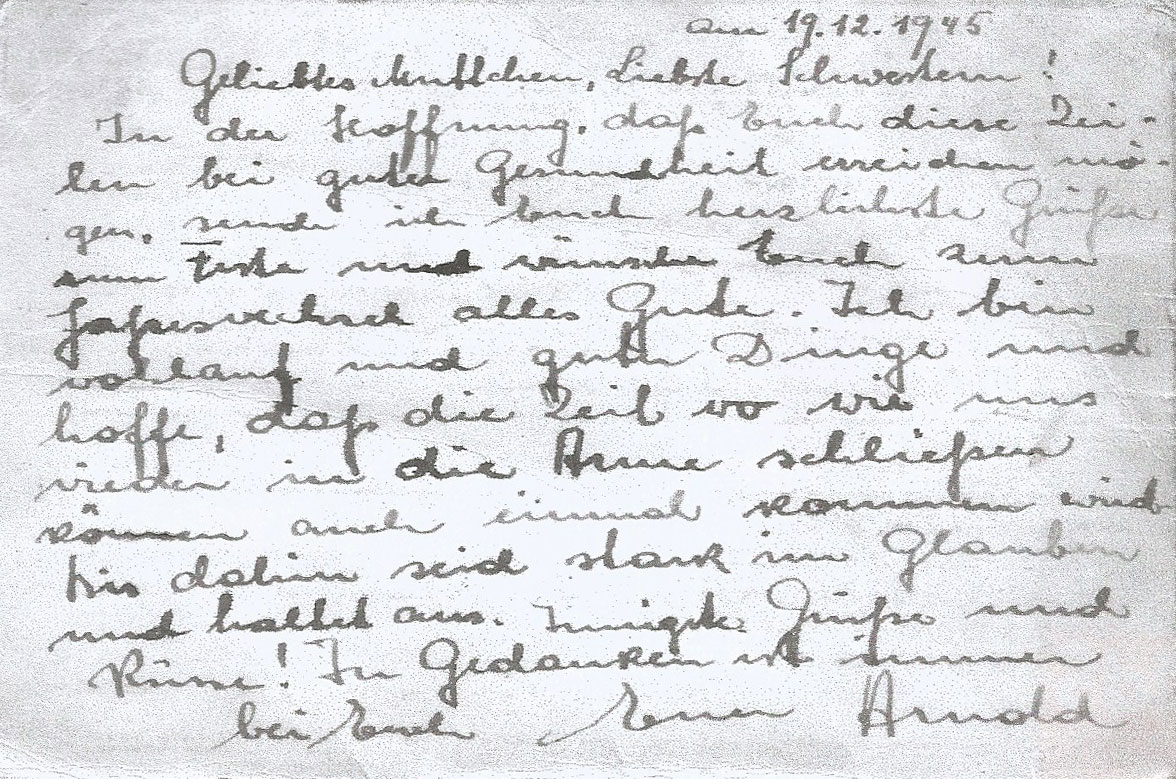 am 19.12.1945
Geliebtes Muttchen, Liebste Schwestern!
In der Hoffnung, daß Euch diese Zei-
len bei guter Gesundheit erreichen mö-
gen, sende ich Euch herzlichste Grüße
zum Feste und wünsche Euch zum
Jahreswechsel alles Gute. Ich bin
wohlauf und guter Dinge und
hoffe, daß die Zeit wo wir uns
wieder in die Arme schließen
können auch einmal kommen wird
bis dahin seid stark im Glauben
und haltet aus. Innigste Grüße und
Küsse! In Gedanken ist immer
bei Euch Euer Arnold